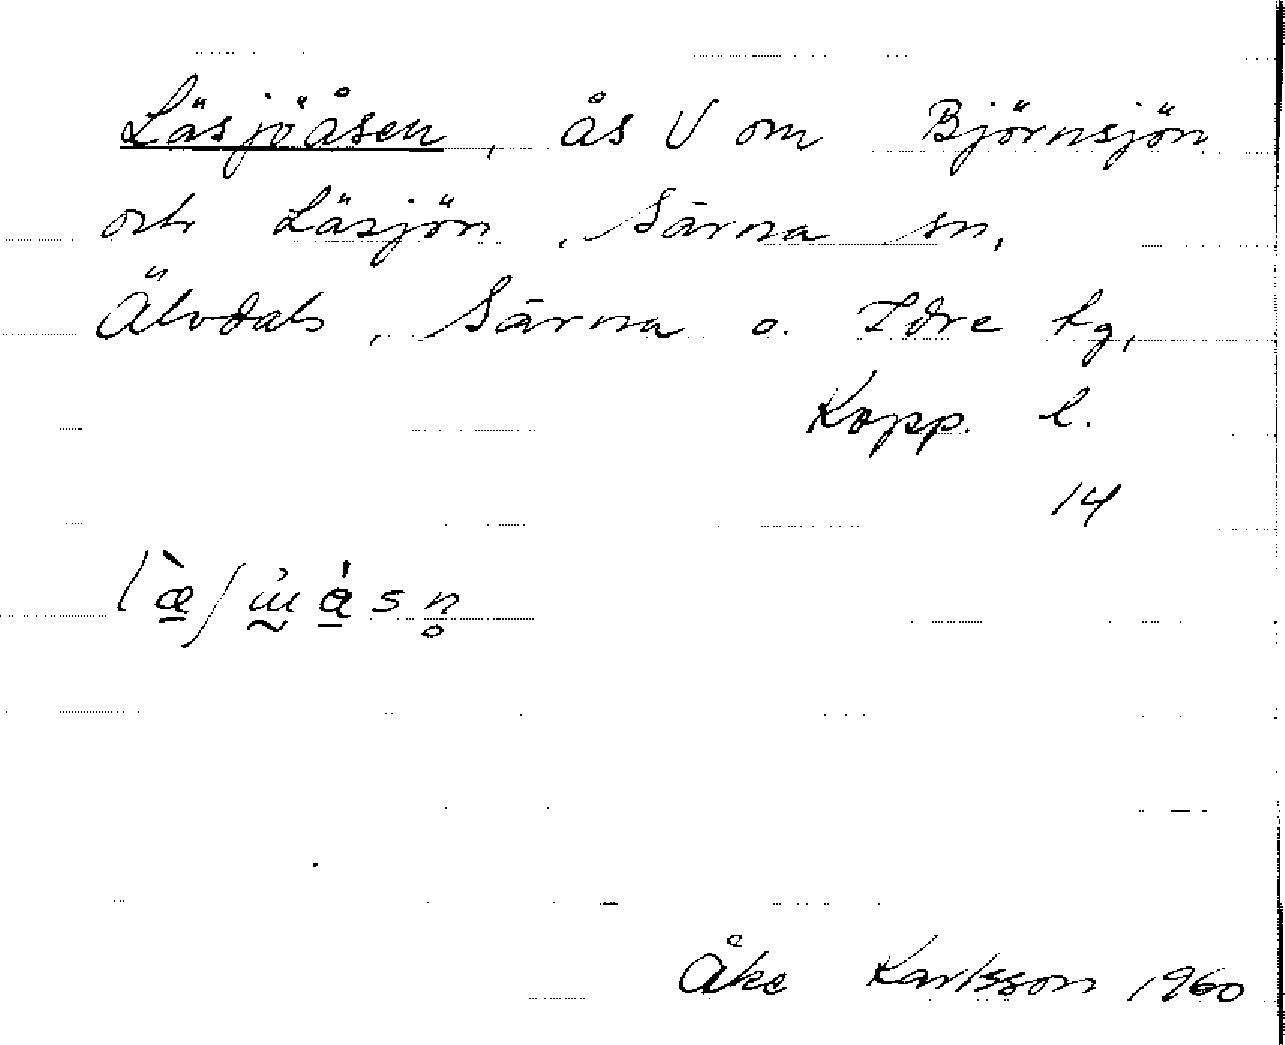 Läsjöåsen, ås V om Björnsjön
och Läsjön, Särna sn,
Älvdals, Särna o. Idre tg,
Kopp. l.
14
Åke Karlsson 1960